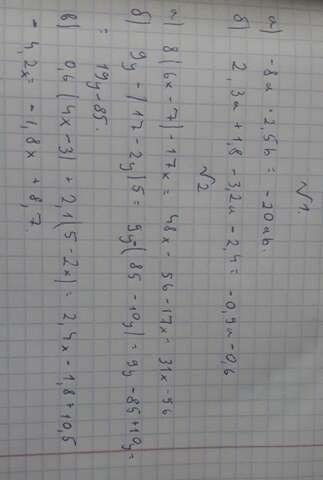 √1.
а) -8а · 2,5b = -20ab.
б) 2,3a + 1,8 - 3,2a - 2,4 = -0,9a - 0,6
√2
а) 8(6x - 7) - 17x = 48x - 56 - 17x = 31x - 56
б) 9y - (17 - 2y)5 = 9y(85 - 10y) = 9y - 85 + 10y =
= 19y - 85.
в) 0,6(4x - 3) + 2,1(5 - 2x) = 2,4x - 1,8 + 10,5
- 4,2x = -1,8x + 8,7.